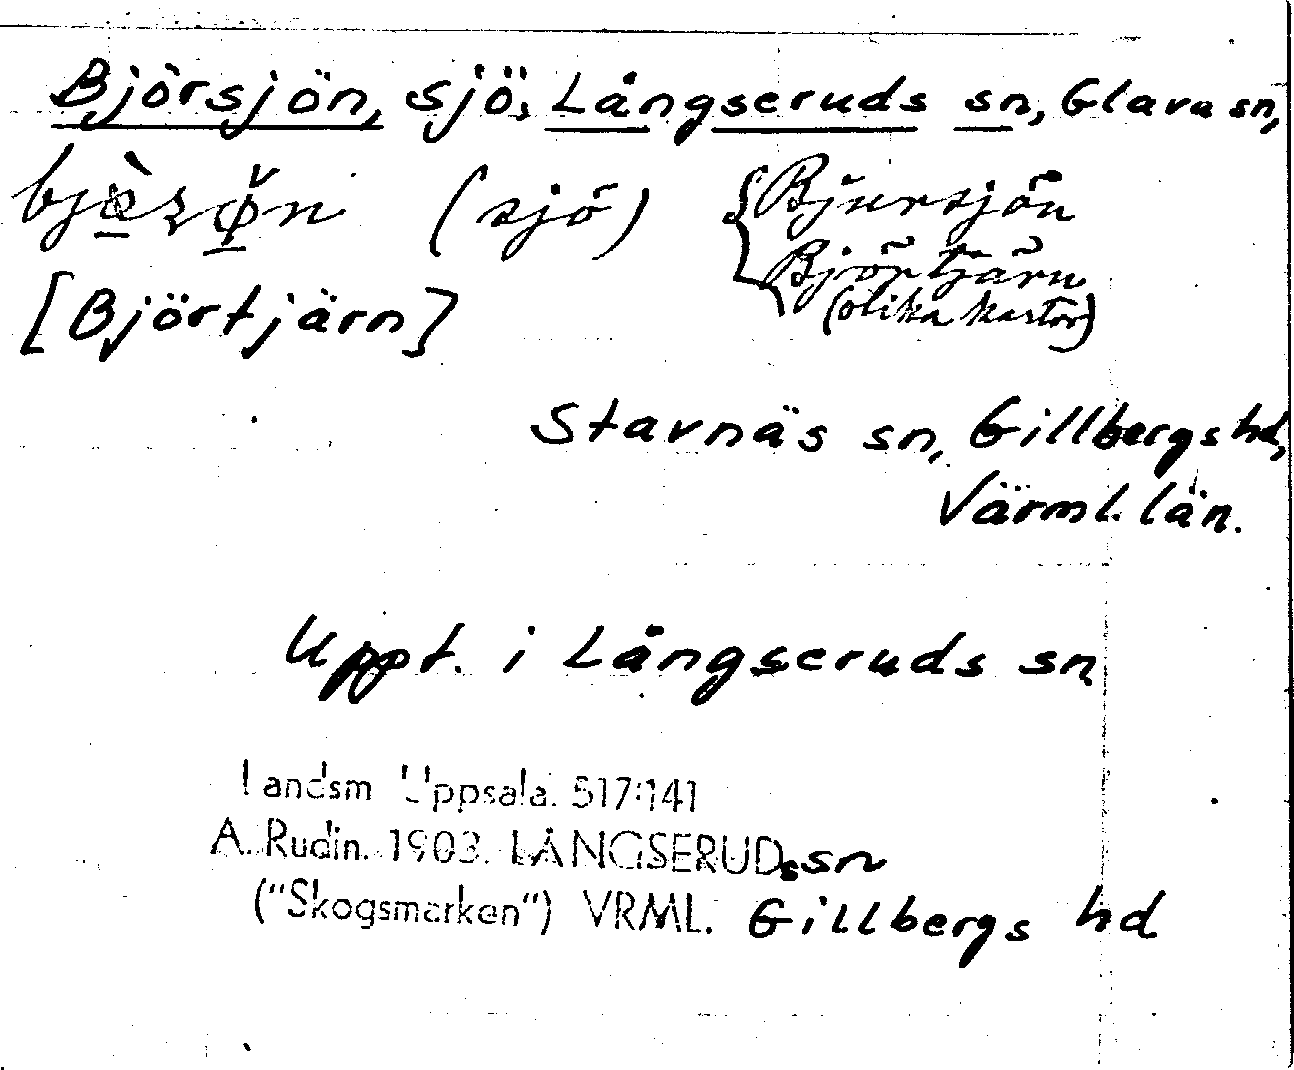 Björsjön, sjö, Långseruds sn, Glava sn,
(sjö) { Bjursjön
Björtjärn
(olika kartor)
[Björtjärn]
Stavnäs sn, Gillbergs hd,
Värml. län.
Uppt. i Långseruds sn
Landsm Uppsala. 517:141
A. Rudin. 1903. LÅNGSERUDs sn
("Skogsmarken") VRML. Gillbergs hd